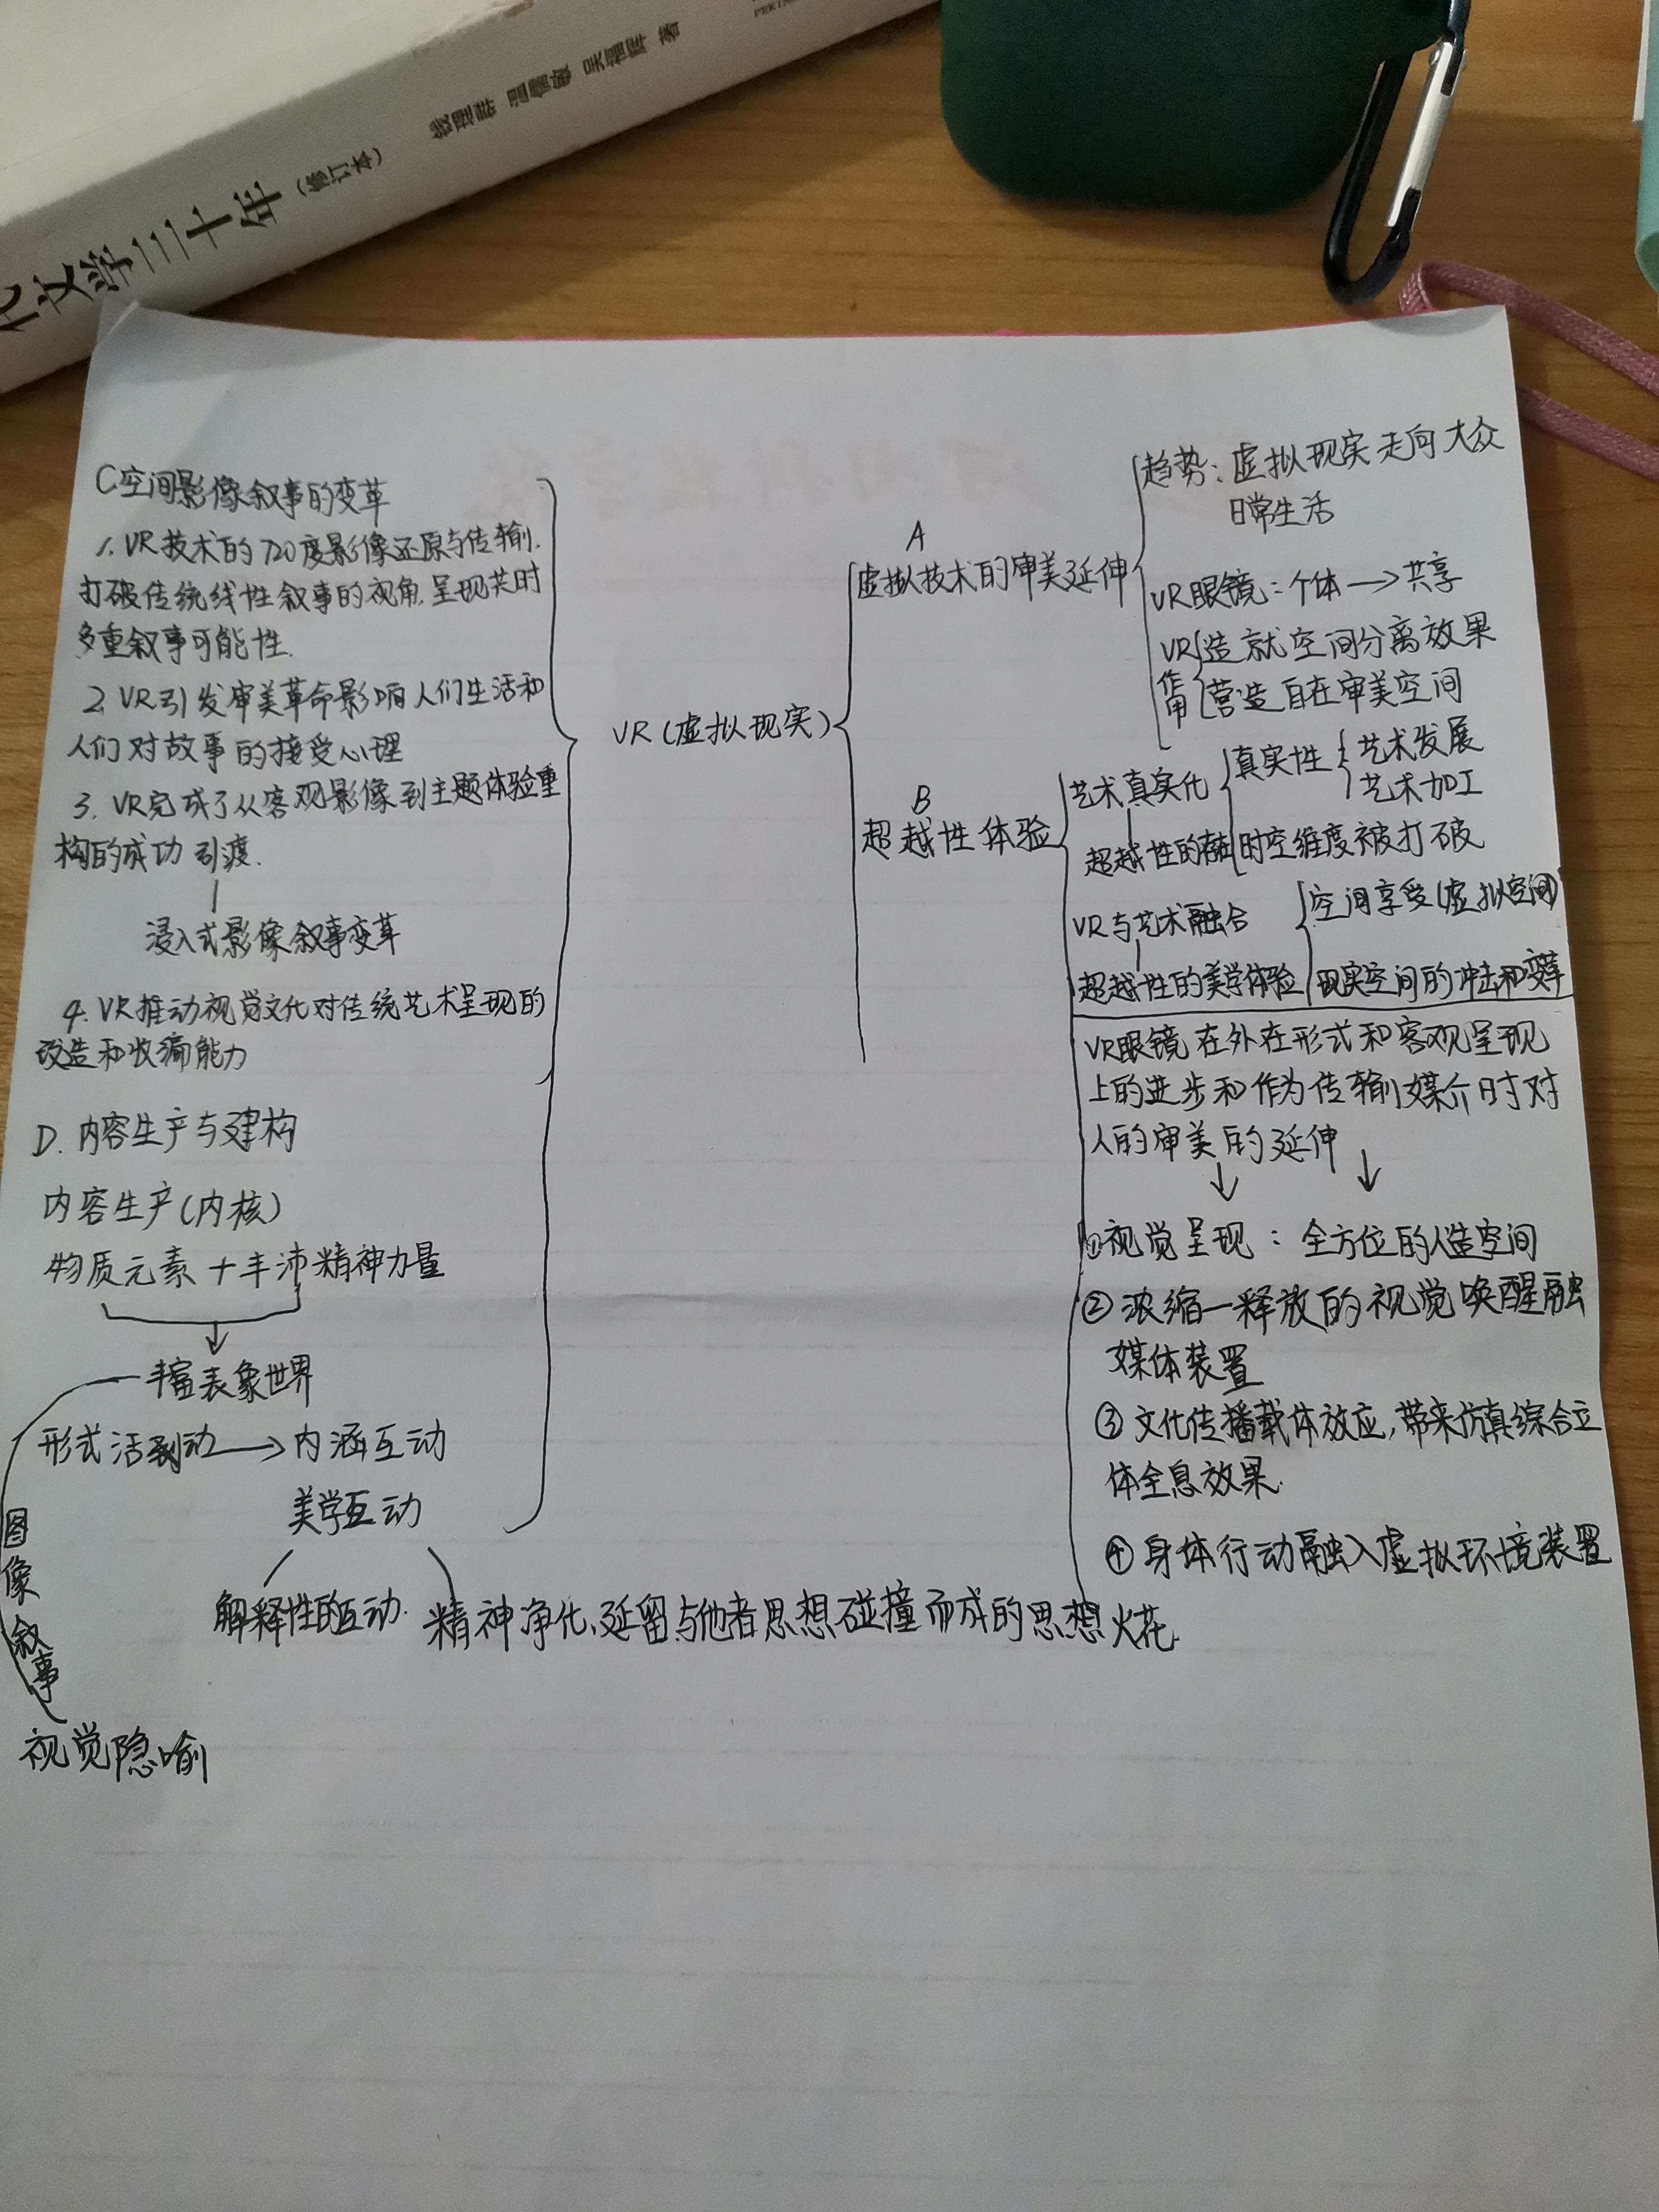 代文学三十年（修订本） 钱理群 温儒敏 吴福辉 著
C空间影像叙事的变革
1. VR技术的720度影像还原与传输.
打破传统线性叙事的视角.呈现共时
多重叙事可能性.
2. VR引发审美革命影响人们生活和
人们对故事的接受心理
3. VR完成了从客观影像到主题体验重
构的成功引渡.
浸入式影像叙事变革
4. VR推动视觉文化对传统艺术呈现的
改造和收编能力
D. 内容生产与建构
内容生产(内核)
物质元素+丰沛精神力量
丰富表象世界
形式活动→内涵互动
美学互动
解释性的互动.
精神净化、延留与他者思想碰撞而成的思想火花.
图像叙事
视觉隐喻
VR(虚拟现实)
A
虚拟技术的审美延伸
趋势：虚拟现实走向大众
日常生活
VR眼镜：个体→共享
VR作用
造就空间分离效果
营造自在审美空间
B
超越性体验
艺术真实化
超越性的
真实性
艺术发展
艺术加工
时空维度被打破
VR与艺术融合
超越性的美学体验
空间享受(虚拟空间)
现实空间的冲击和变革
VR眼镜在外在形式和客观呈现
上的进步和作为传输媒介时对
人的审美的延伸
↓ ↓
①视觉呈现：全方位的人造空间
②浓缩—释放的视觉唤醒融
媒体装置
③文化传播载体效应,带来仿真综合立
体全息效果.
④身体行动融入虚拟环境装置